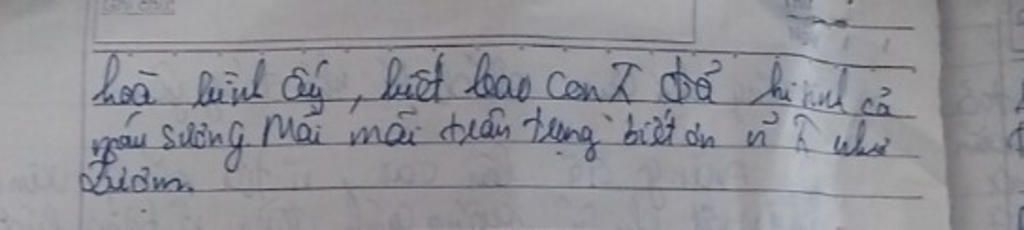 hoà bình ấy, biết bao con đã hi sinh cả
máu sương Mãi mãi trân trọng biết ơn như